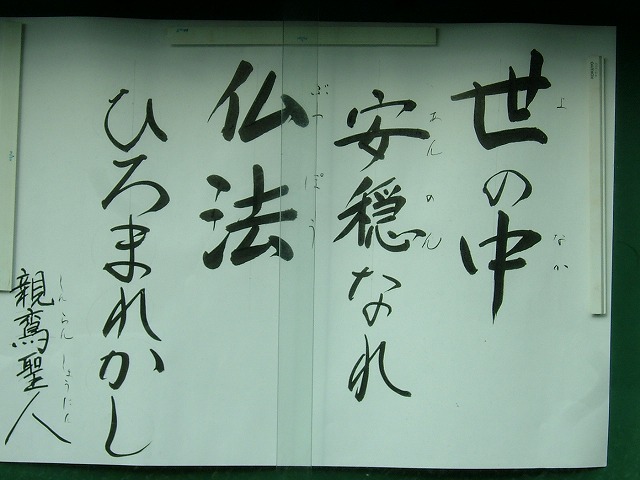 世の中
よ なか
安穏なれ
あんのん
仏法
ぶっぽう
ひろまれかし
親鸞聖人
しんらん しょうにん